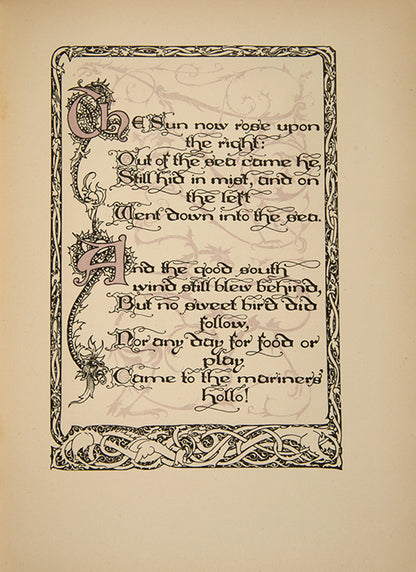 The Sun now rose upon
the right:
Out of the sea came he,
Still hid in mist, and on
the left
Went down into the sea.
And the good south
wind still blew behind,
But no sweet bird did
follow,
Nor any day for food or
play
Came to the mariners'
hollo!